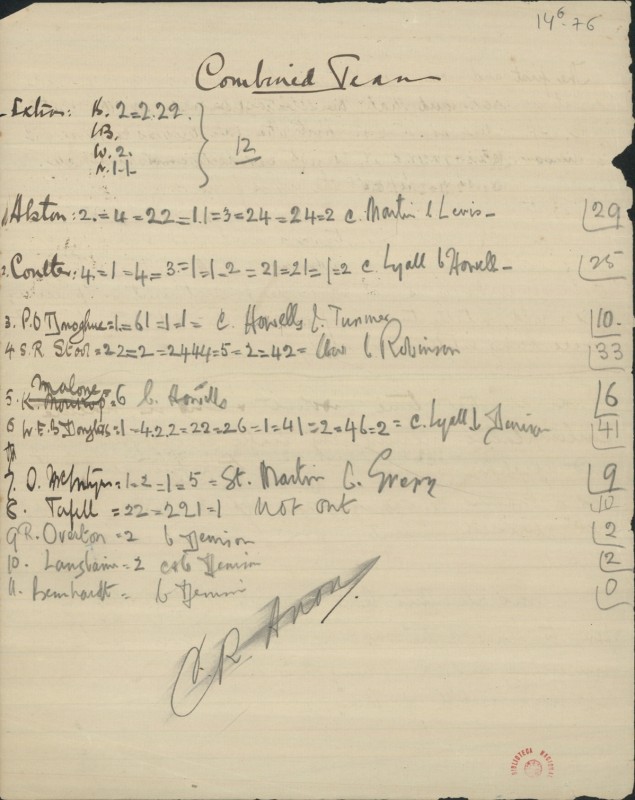 14 6. 76
Combined Team
Extras: B. 2=2.22.
LB.
W. 2.
N. 1-1-
12
1. Alston: 2.=4=22=1.1=3=24=24=2 c. Martin b Lewis- 29
2. Coulter: 4.=1=4=3=1=1-2=21=21=1=2 c. Lyall b Howell- 25
3. P.O Donoghue=1=61=1=1= c. Howells b. 10.
4 S.R Stoot=22=2=2444=5=2=42= b Robinson 33
5. Malone=6 b. Howells 6
6 W.E.B Douglas=1=4.2.2=22=26=1=41=2=46=2= c. Lyall b Denison 41
7. O. McIntyre=1=2=1=5= St. Martin b. 9
8. Tafell=22=221=1 not out 10
9 R. Overton=2 b Denison 2
10. Langbaine=2 c&b Denison 2
11. Bernhardt= b Denison 0
BIBLIOTECA NACIONAL